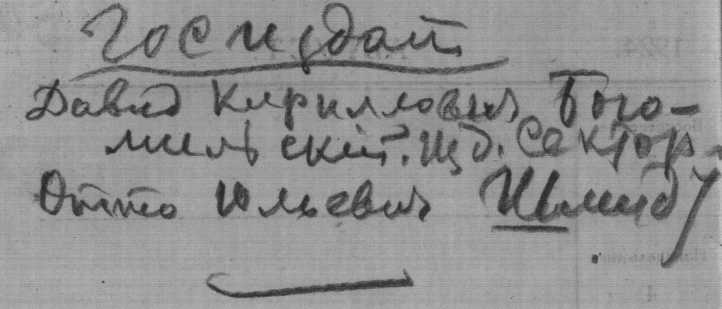 Госиздат
Давид Кириллович Бого-
мильский. Изд. Сектор.
Отто Юльевич Шмидт